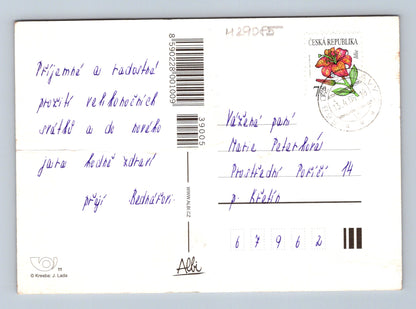 M29065
ČESKÁ REPUBLIKA
Příjemné a radostné
prožití velikonočních
svátků a do nového
jara hodně zdraví
přejí Bednářovi
8590228001009
39005
WWW.ALBI.CZ
Albi
Vážená paní
Marie Peterková
Prostřední Poříčí 14
p. Křetín
6 7 9 6 2
© Kresba: J. Lada